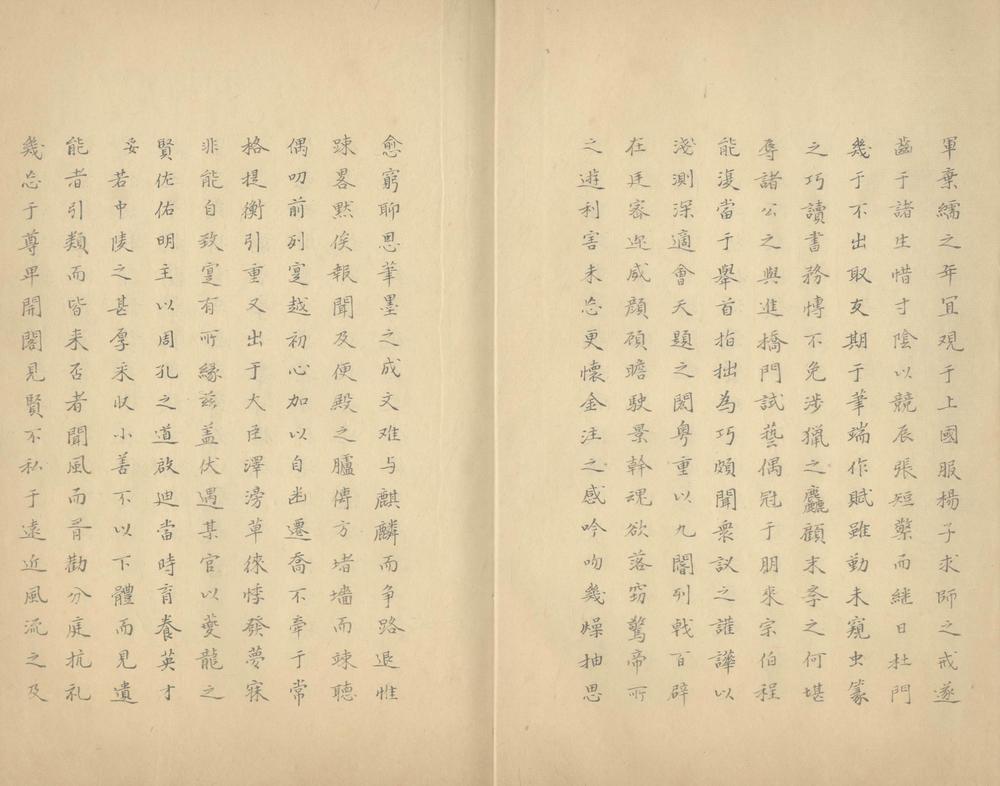 軍棄繻之年冝观于上國服楊子求師之戒遂
齒于諸生惜寸陰以競辰張短檠而継日杜門
幾于不出取友期于筆端作賦雖動未窺虫篆
之巧讀書務愽不免涉獵之麤顧末孝之何堪
辱諸公之與進橋門試藝偶冠于朋來宗伯程
能湲當于舉首指拙為巧頗聞衆议之讙譁以
淺測深適會天題之閎粤重以九闇列戟百辟
在廷審迩威顔碩瞻駛景幹魂欲落窃驚帝所
之逰利害未忘更懐金注之感吟吻幾燥抽思
愈窮聊思華墨之成文难与麒麟而争路退惟
踈畧黙俟報聞及便殿之臚傳方堵墻而竦聽
偶叨前列寔越初心加以自凼遷喬不牵于常
格提衡引重又出于大臣澤滂草徠悸發夢寐
非能自致寔有所縁兹盖伏遇某官以夔龍之
賢佐佑明主以周孔之道啟迪當時育養英才
妥若中陵之甚厚采収小善不以下體而見遺
能者引類而皆来否者聞風而胥勸分庭抗礼
幾忘于尊卑開閣見賢不私于遠近風流之及